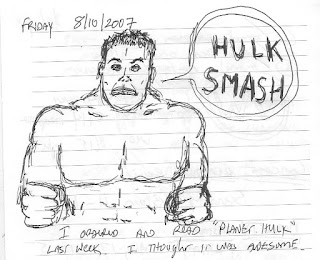 FRIDAY 8/10/2007
HULK
SMASH
I ORDERED AND READ "PLANET HULK"
LAST WEEK. I THOUGHT IT WAS AWESOME